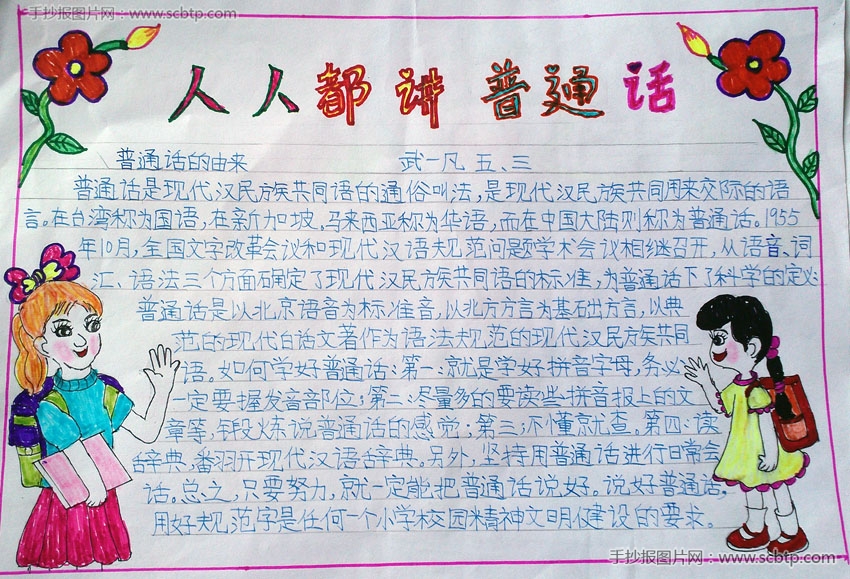 手抄报图片网：www.scbtp.com
手抄报图片网：www.scbtp.com
人人都讲普通话
普通话的由来 武一凡 五、三
普通话是现代汉民族共同语的通俗叫法，是现代汉民族共同用来交际的语
言。在台湾称为国语，在新加坡，马来西亚称为华语，而在中国大陆则称为普通话。1955
年10月，全国文字改革会议和现代汉语规范问题学术会议相继召开，从语音、词
汇、语法三个方面确定了现代汉民族共同语的标准，为普通话下了科学的定义：
普通话是以北京语音为标准音，以北方方言为基础方言，以典
范的现代白话文著作为语法规范的现代汉民族共同
语。如何学好普通话：第一：就是学好拼音字母，务必
一定要握发音部位；第二：尽量多的要读些拼音报上的文
章等，锻炼说普通话的感觉；第三：不懂就查。第四：读
辞典，翻开现代汉语辞典。另外，坚持用普通话进行日常会
话。总之，只要努力，就一定能把普通话说好。说好普通话，
用好规范字是任何一个小学校园精神文明建设的要求。
手抄报图片网：www.scbtp.com